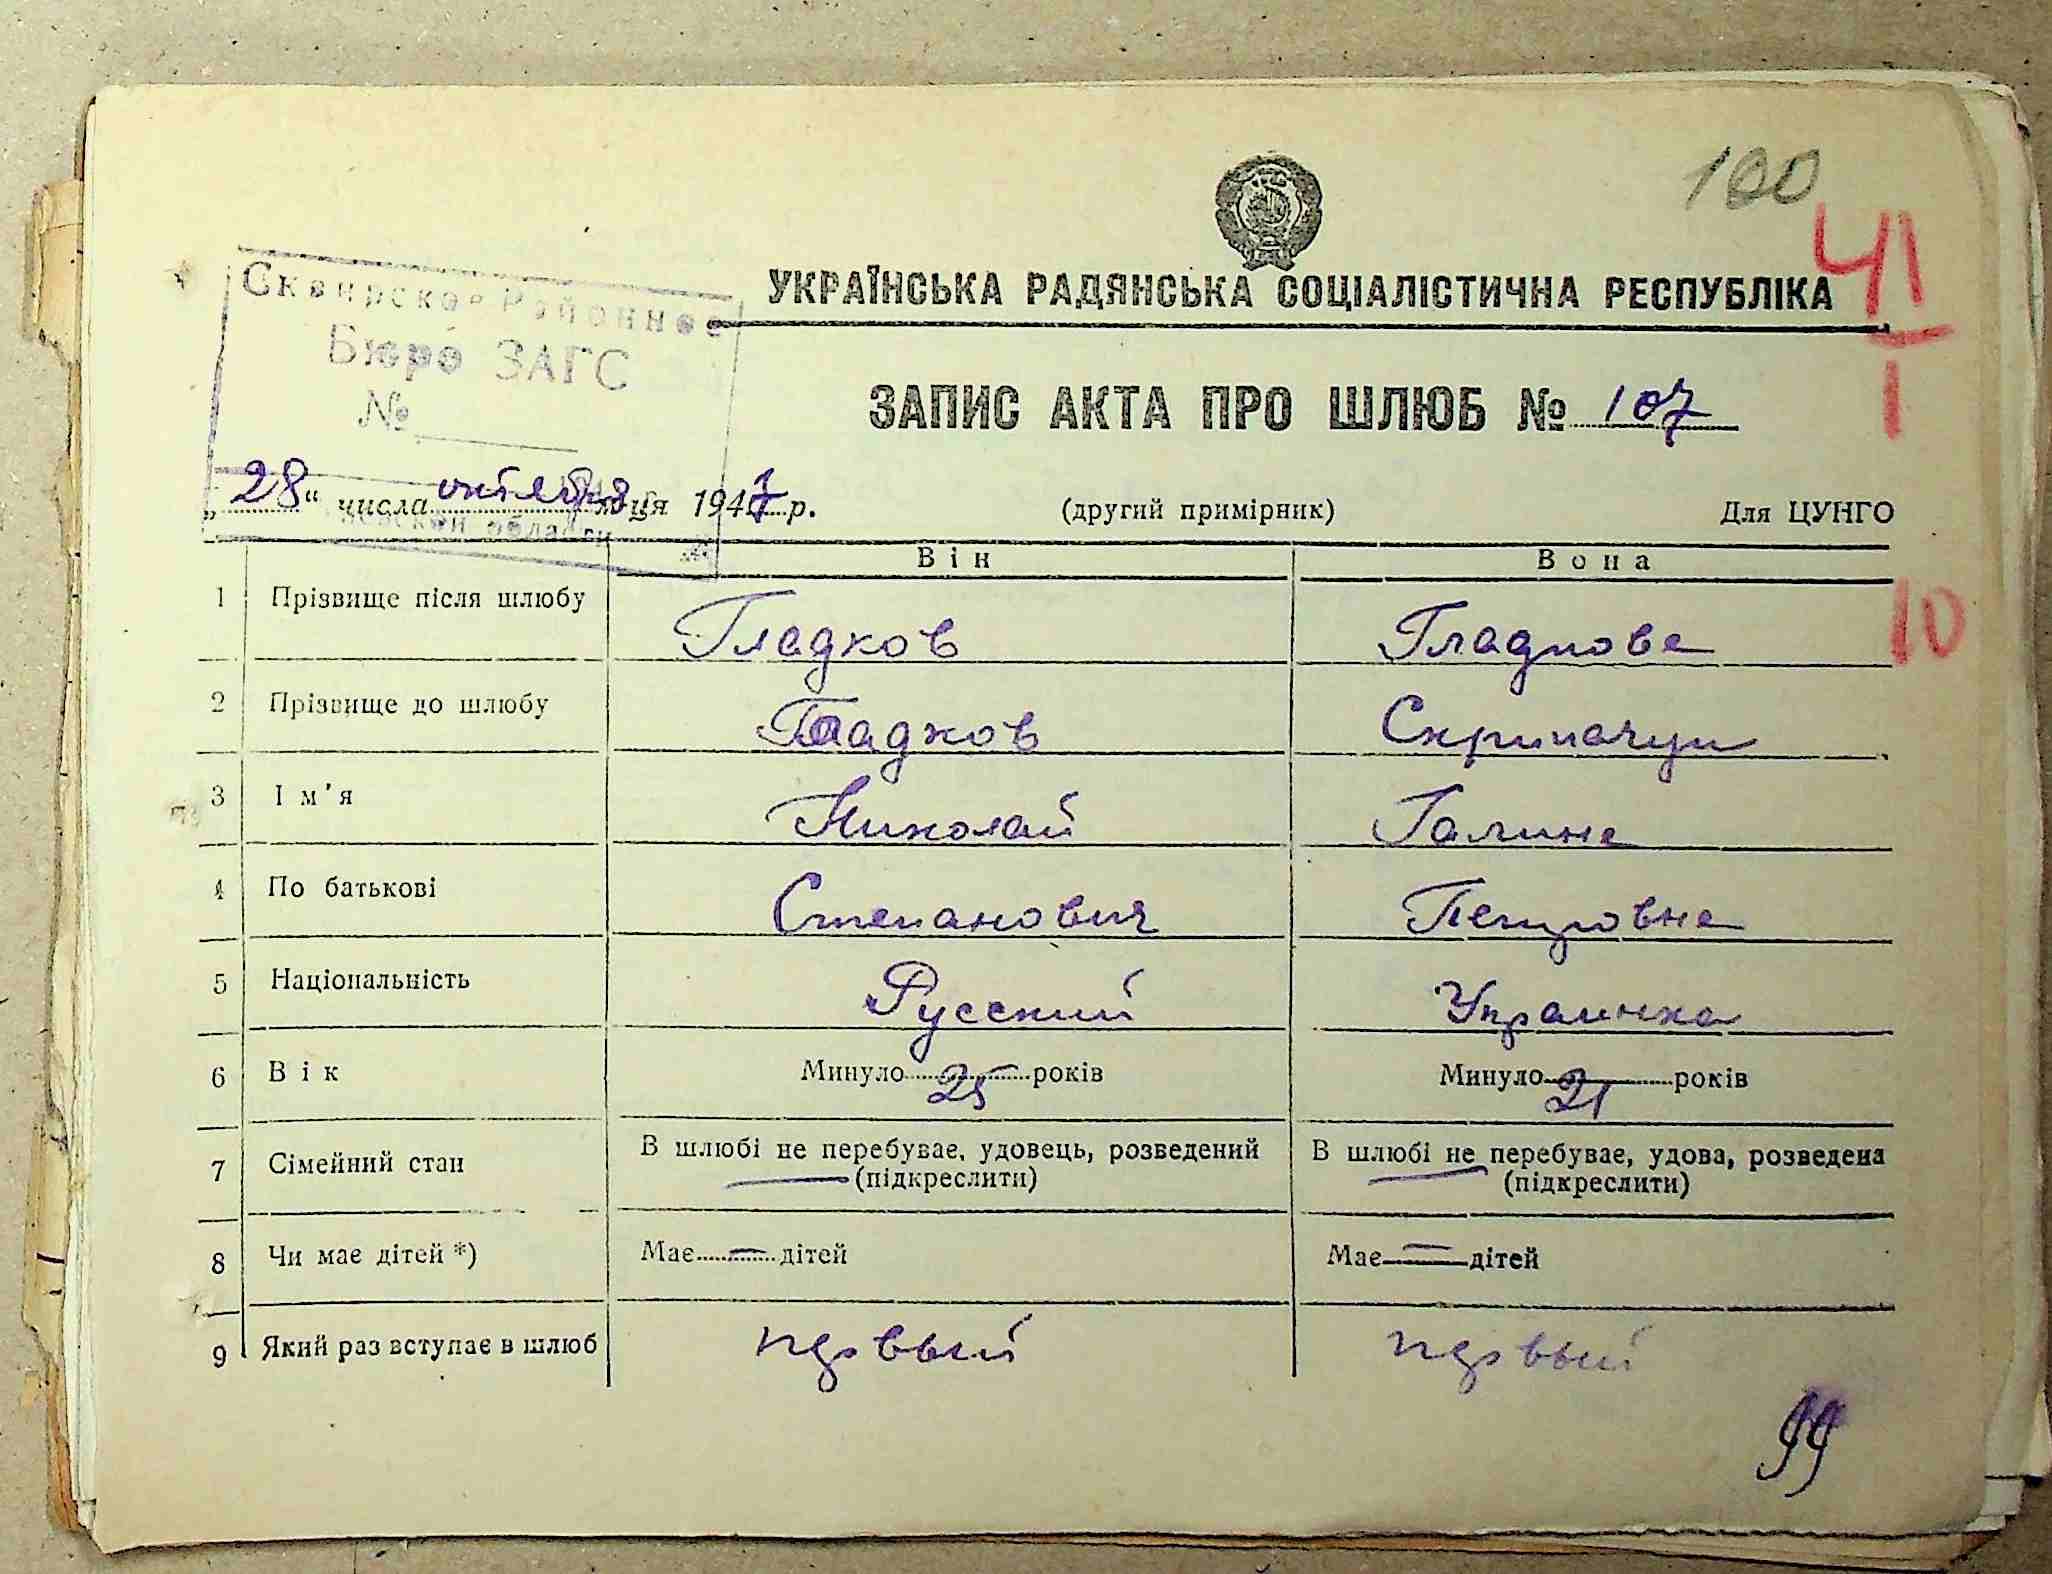 100
41
1
УКРАЇНСЬКА РАДЯНСЬКА СОЦІАЛІСТИЧНА РЕСПУБЛІКА
Сквирское Районное
Бюро ЗАГС
№
области
ЗАПИС АКТА ПРО ШЛЮБ № 107
„28“ числа октября місяця 1947 р. (другий примірник) Для ЦУНГО
Він Вона
1 Прізвище після шлюбу Гладков Гладкова
10
2 Прізвище до шлюбу Гладков Скрипачук
3 Ім'я Николай Галина
4 По батькові Степанович Петровна
5 Національність Русский Украинка
6 Вік Минуло 25 років Минуло 21 років
7 Сімейний стан В шлюбі не перебуває, удовець, розведений В шлюбі не перебуває, удова, розведена
(підкреслити) (підкреслити)
8 Чи має дітей *) Має — дітей Має — дітей
9 Який раз вступає в шлюб первый первый
99